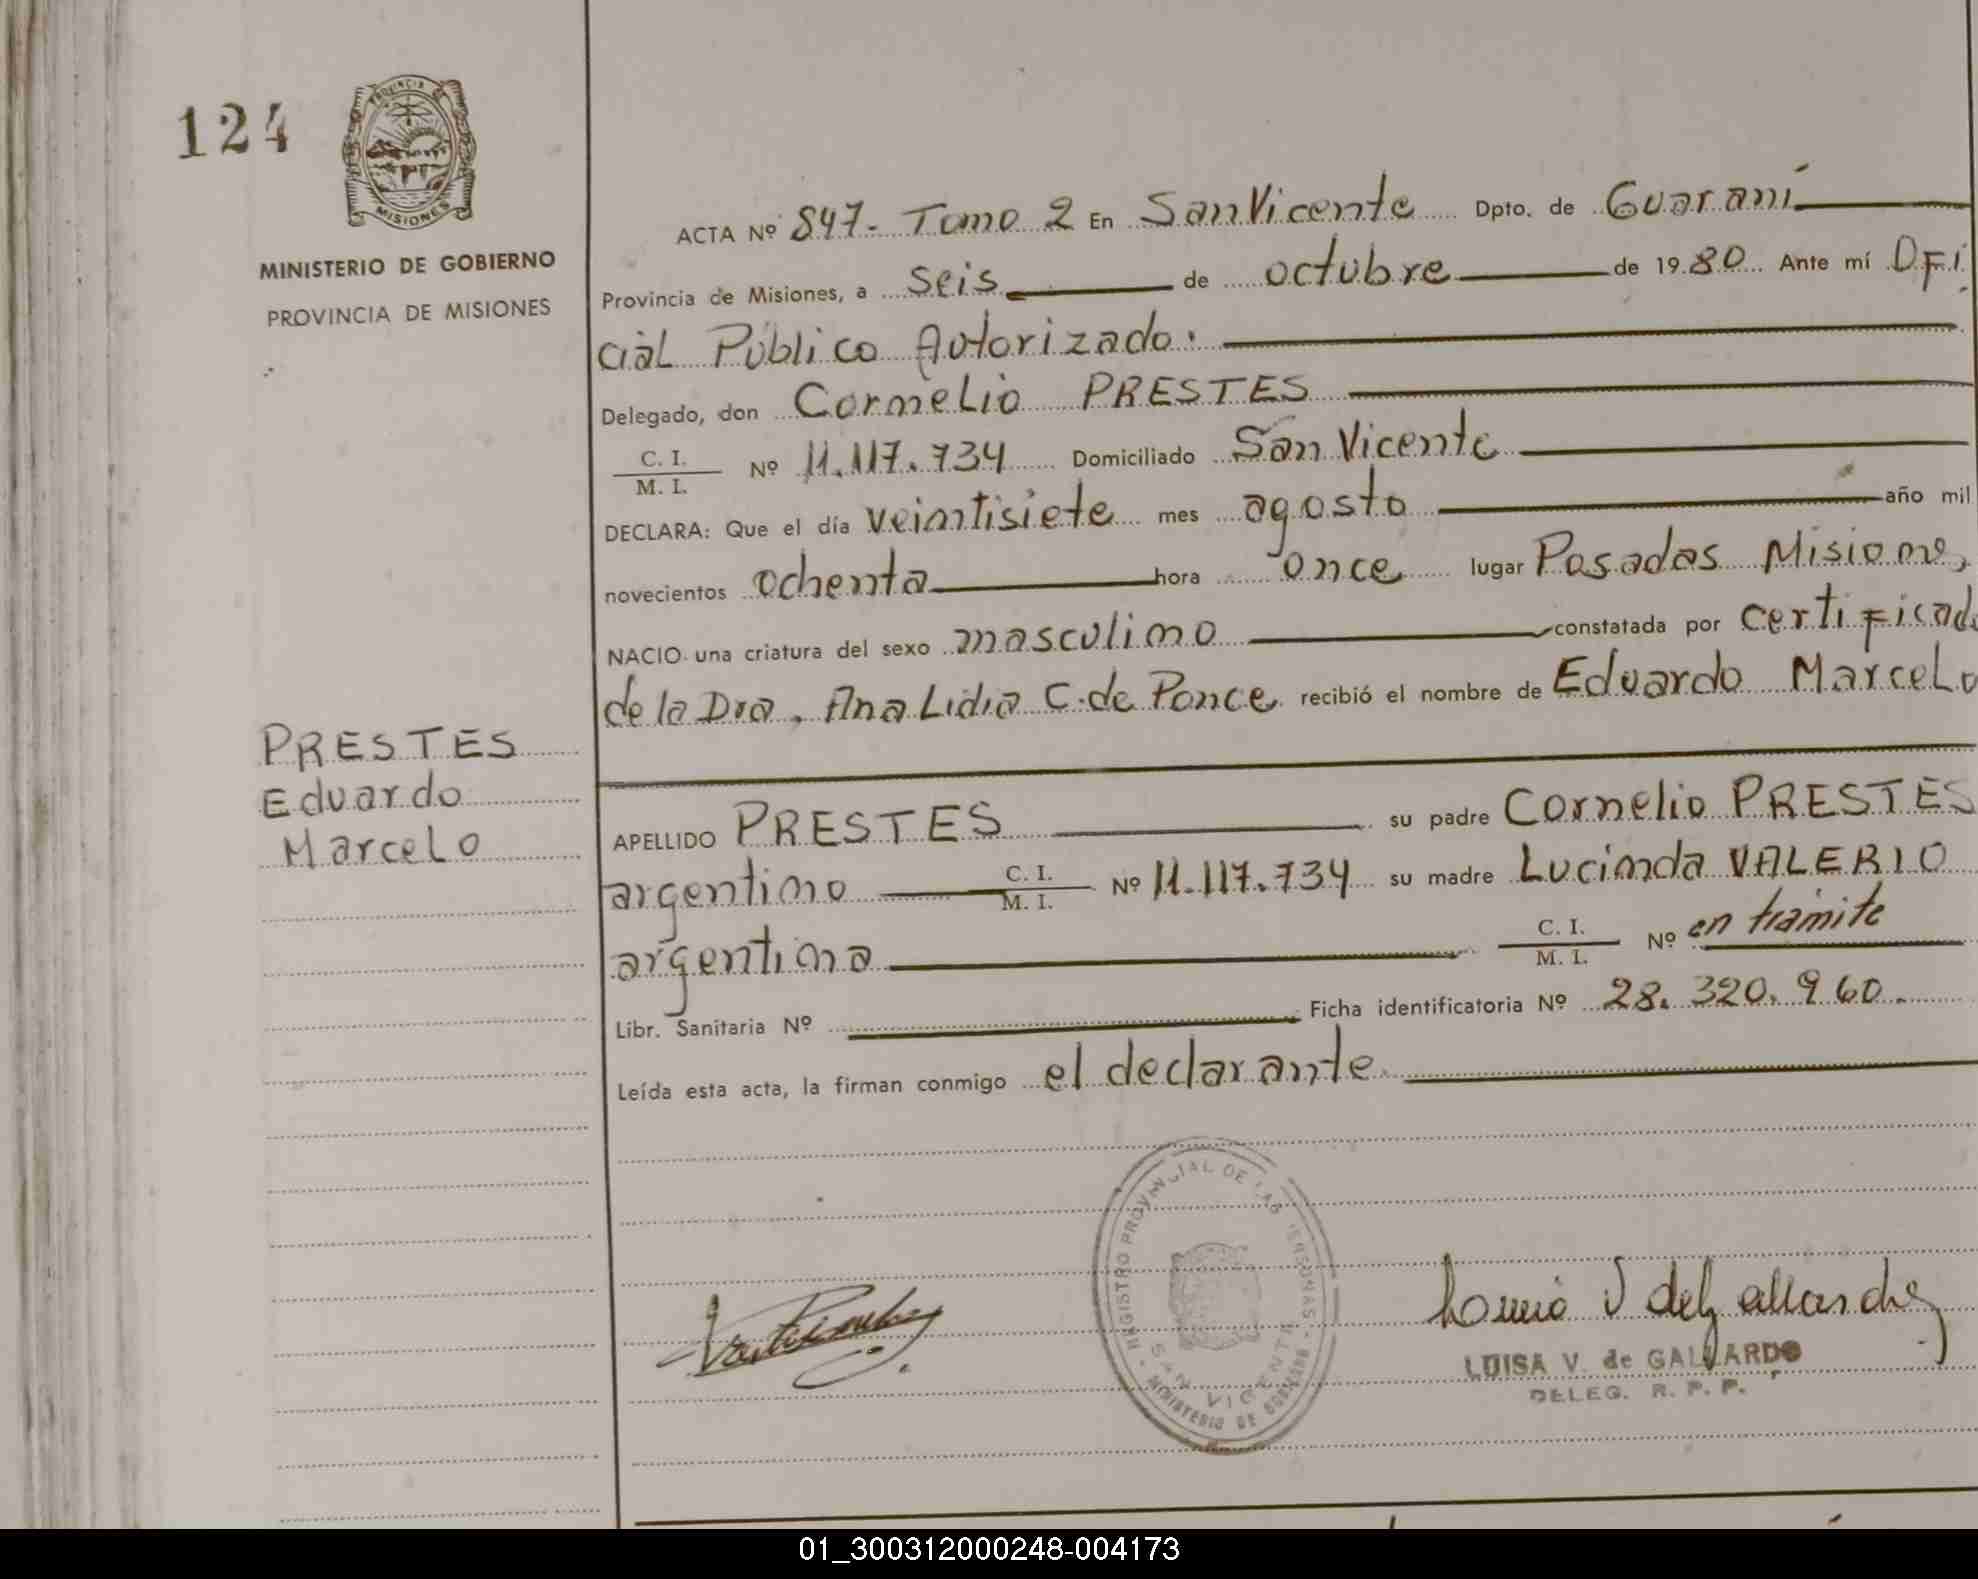 124
PROVINCIA DE
MISIONES
MINISTERIO DE GOBIERNO
PROVINCIA DE MISIONES
PRESTES
Eduardo
Marcelo
ACTA Nº 847- Tomo 2 En San Vicente Dpto. de Guaraní
Provincia de Misiones, a seis de octubre de 1980 Ante mí OFi
cial Público Autorizado.
Delegado, don Cornelio PRESTES
C. I.
M. I. Nº 11.117.734 Domiciliado San Vicente
DECLARA: Que el día veintisiete mes agosto año mil
novecientos ochenta hora once lugar Posadas Misiones
NACIO una criatura del sexo masculino constatada por certificado
de la Dra. Ana Lidia C. de Ponce recibió el nombre de Eduardo Marcelo
APELLIDO PRESTES su padre Cornelio PRESTES
argentino C. I. M. I. Nº 11.117.734 su madre Lucinda VALERIO
argentina C. I. M. I. Nº en trámite
Libr. Sanitaria Nº Ficha identificatoria Nº 28.320.960.
Leída esta acta, la firman conmigo el declarante.
REGISTRO PROVINCIAL DE LAS PERSONAS - MINISTERIO DE GOBIERNO -
SAN VICENTE
LUISA V. de GALLARDO
DELEG. R. P. P.
01_300312000248-004173